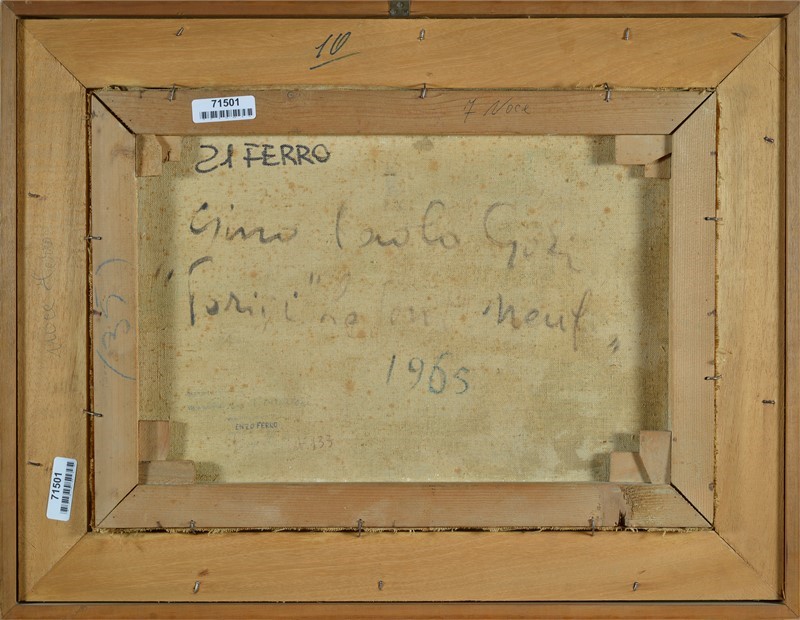 10
71501
7 Noce
21 FERRO
Gino Paolo Gori
"Parigi" le pont neuf"
1965
(35)
ENZO FERRO
133
71501